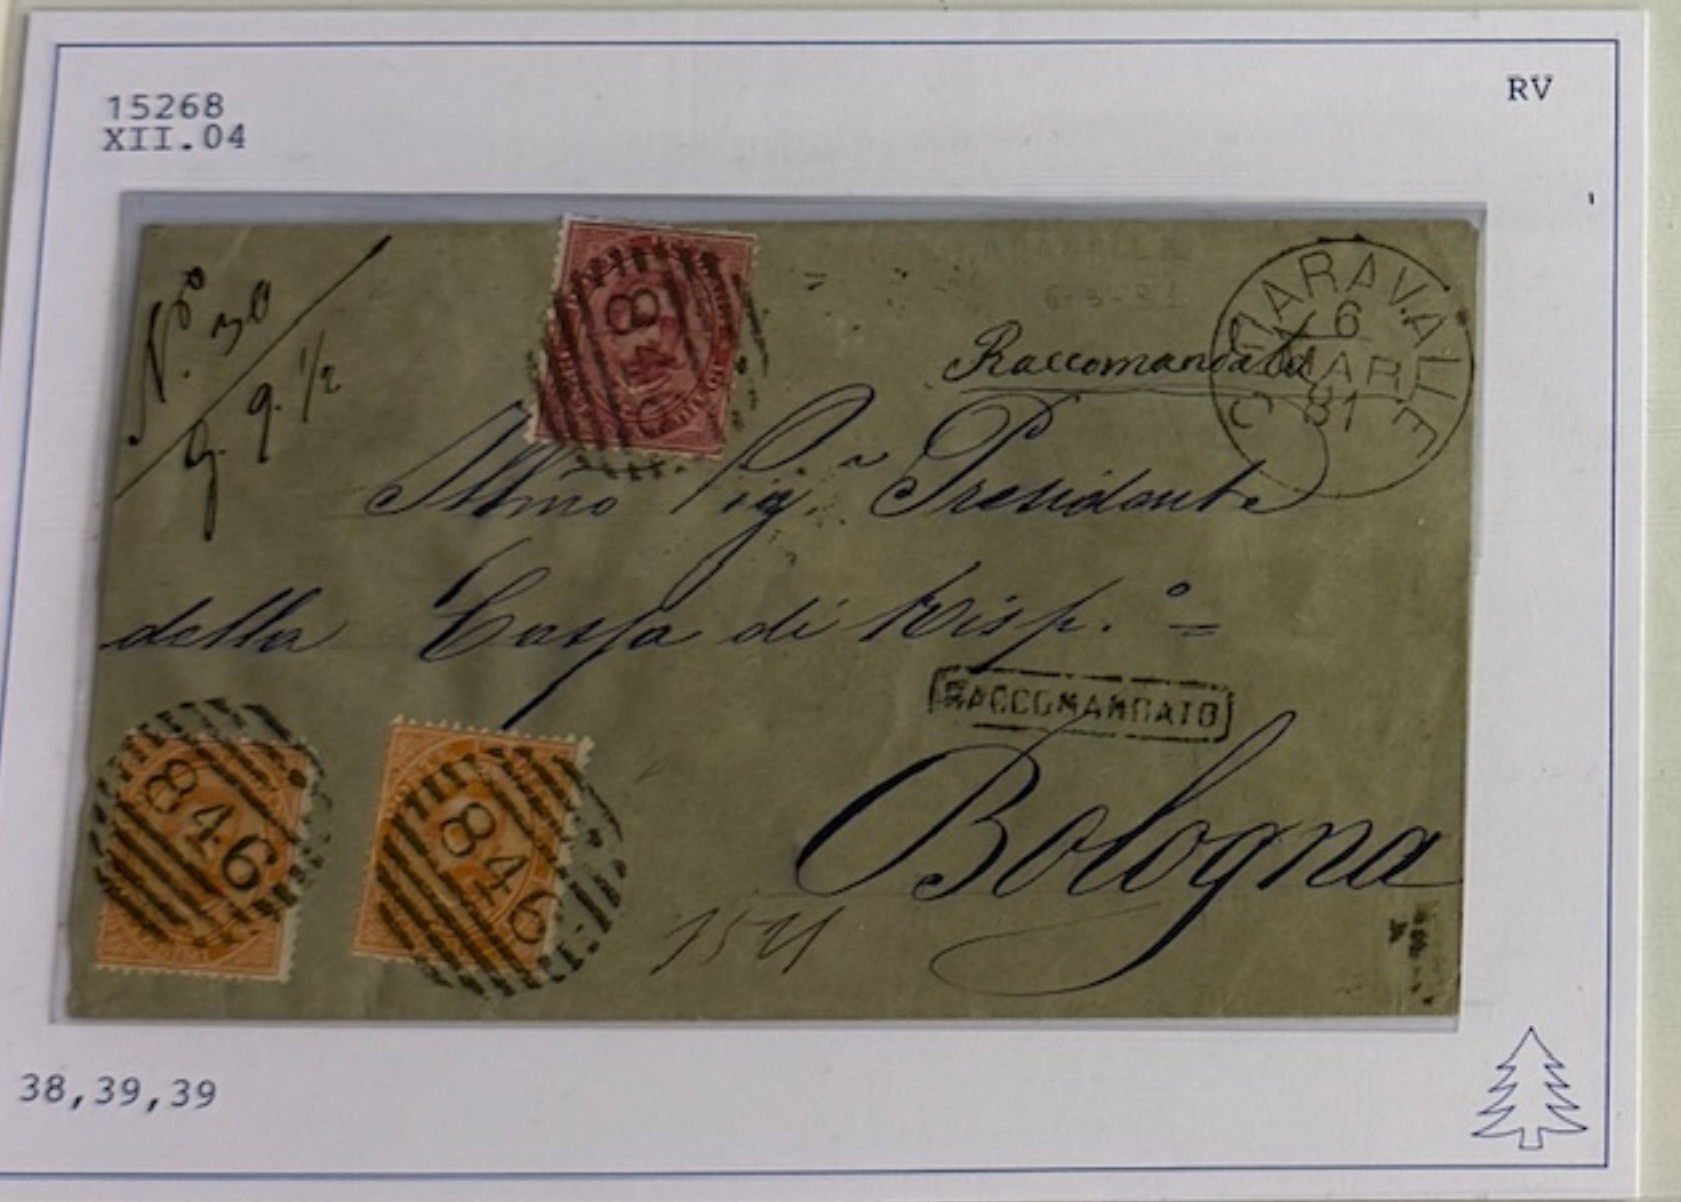 15268
XII.04
RV
N.º 30
g. 9. 1/2
846
C MARAV.ALLE
6
MAR
81
6-3-81
Raccomandata
Illmo Sig.r Presidente
della Cassa di Risp.º =
RACCOMANDATO
Bologna
846
846
38,39,39